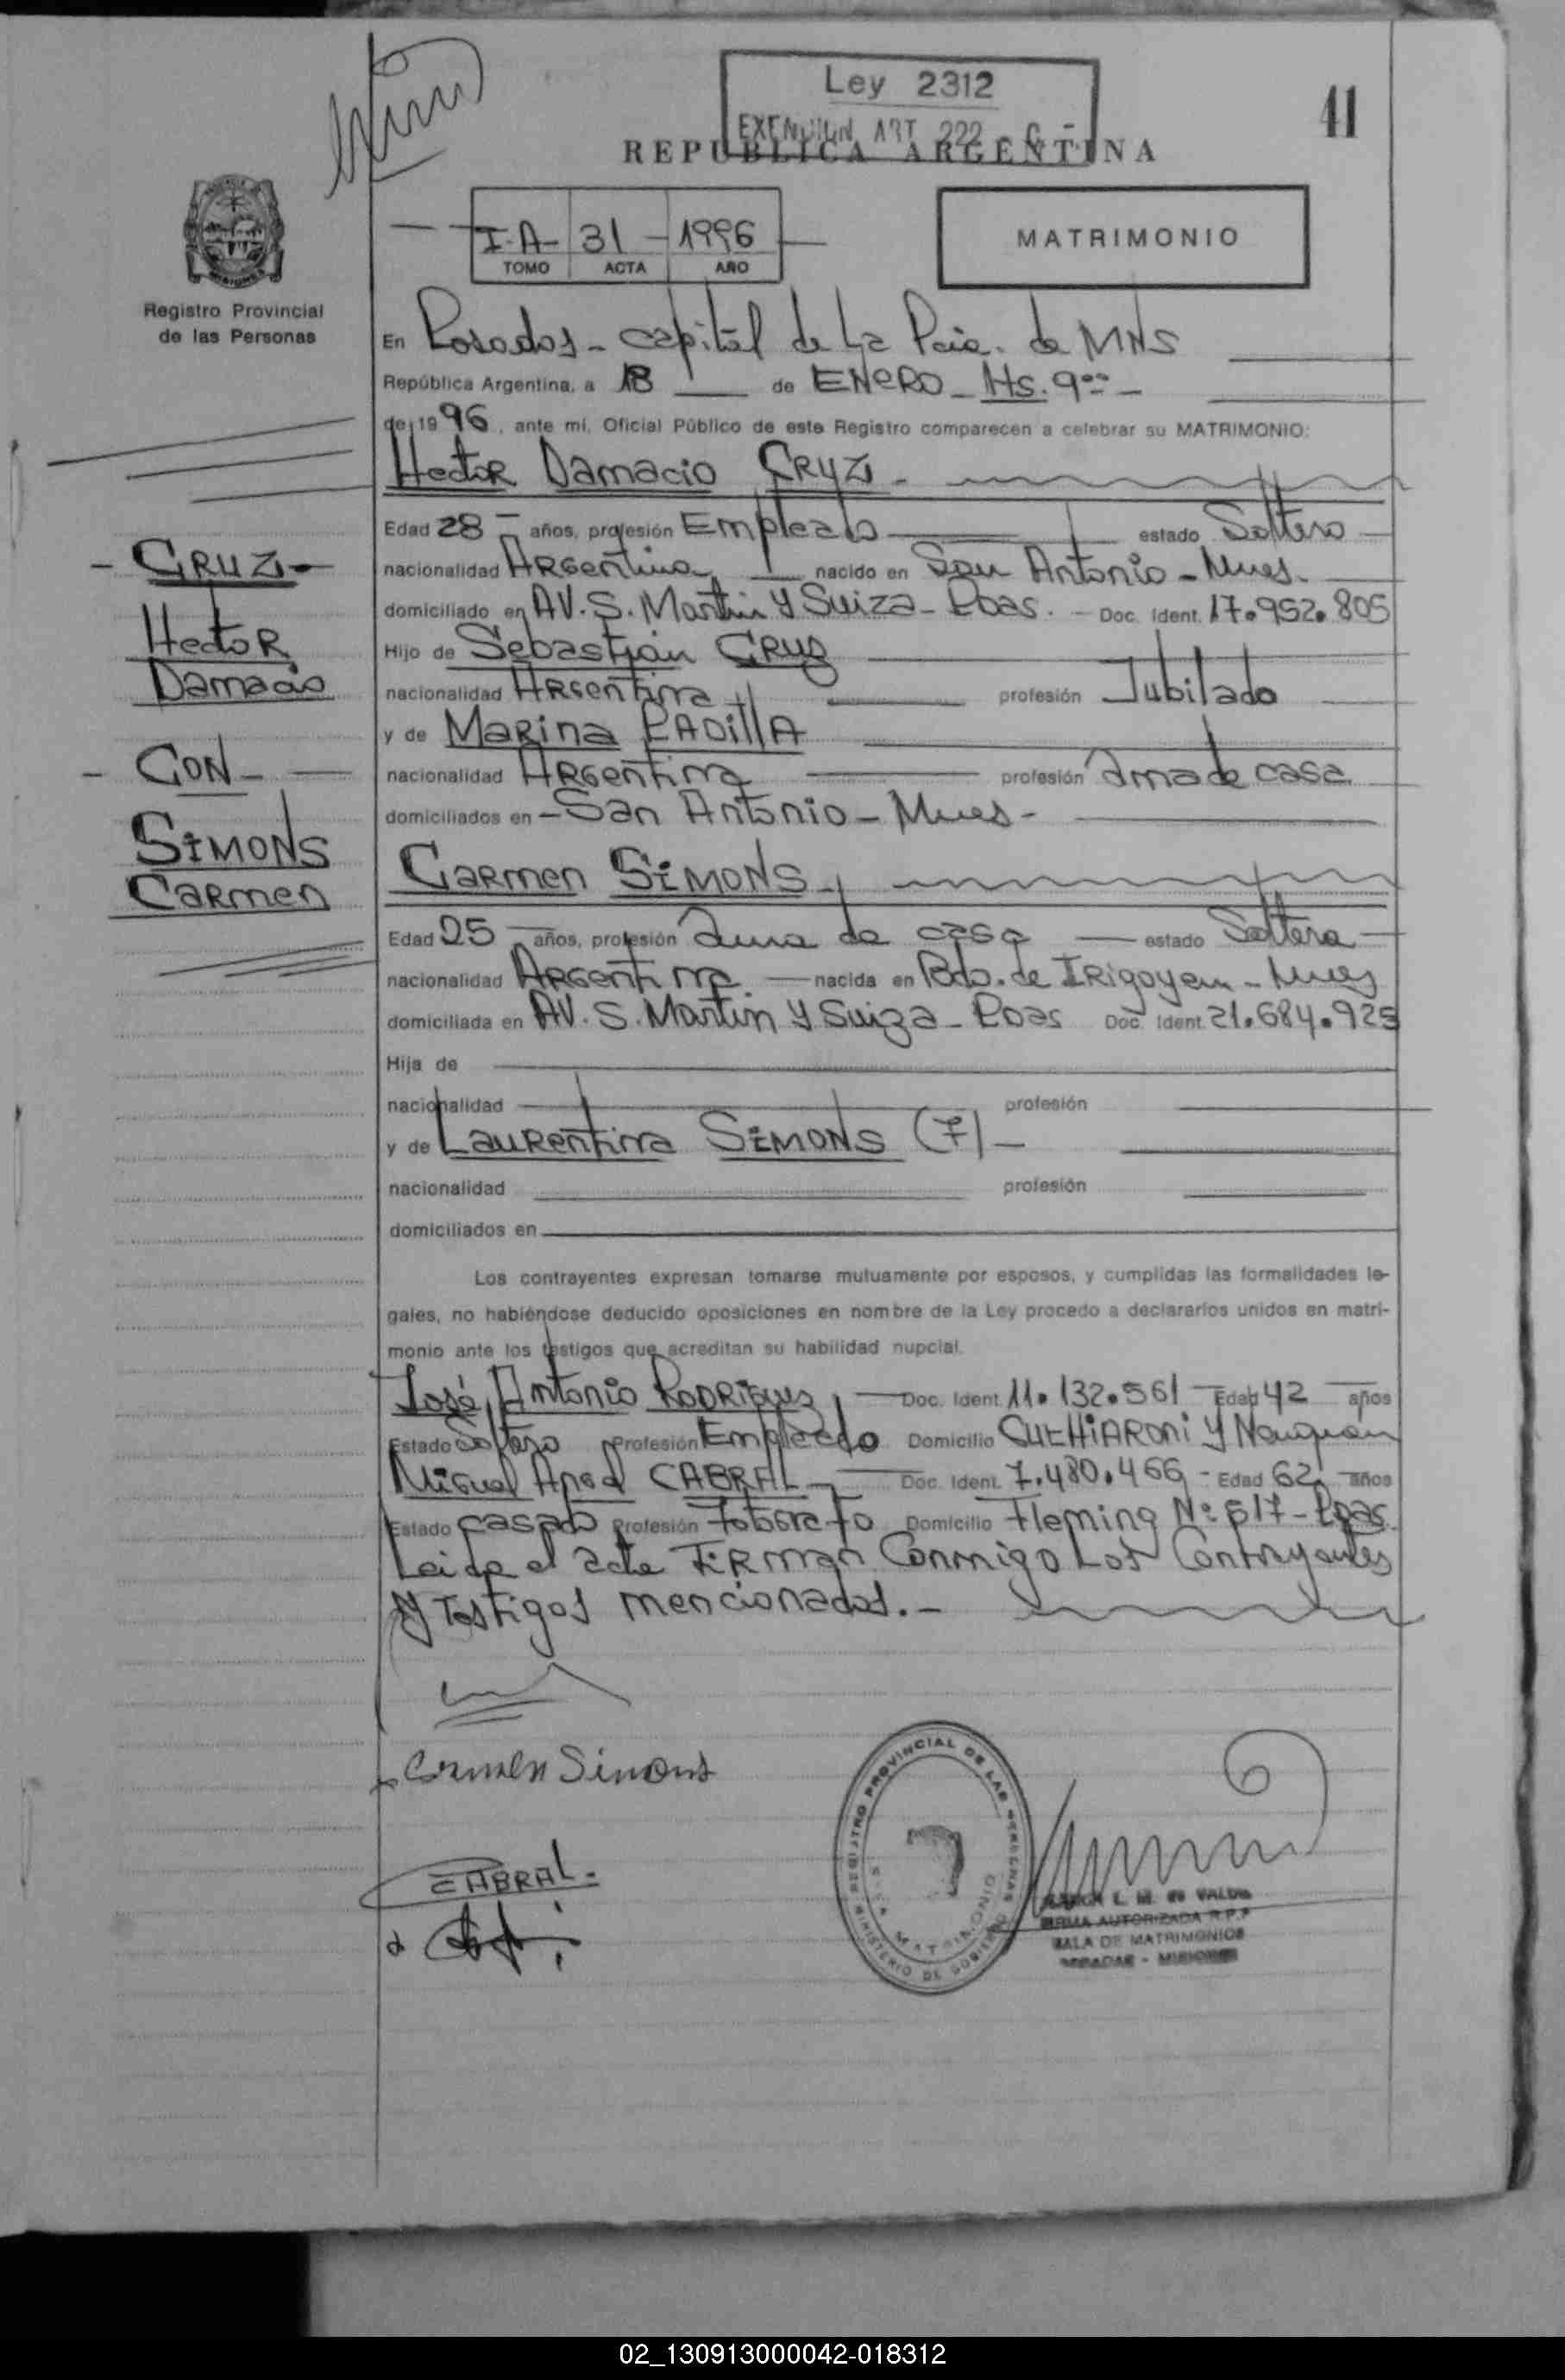 Ley 2312
EXENCION ART 222
41
REPUBLICA ARGENTINA
I-A- 31 - 1996
TOMO ACTA AÑO
MATRIMONIO
Registro Provincial
de las Personas
En Posadas - capital de La Pcia. de MNS
República Argentina, a 18 de ENERO - Hs. 9ºº -
de 1996, ante mí, Oficial Público de este Registro comparecen a celebrar su MATRIMONIO:
Hector Damacio CRUZ -
Edad 28 - años, profesión Empleado estado Soltero
- CRUZ -
nacionalidad Argentina nacido en San Antonio - Mnes.
domiciliado en AV. S. Martin y Suiza - Pdas. - Doc. Ident. 17.952.805
Hector
Hijo de Sebastián CRUZ
Damacio
nacionalidad Argentina profesión Jubilado
y de Marina PADILLA
- CON -
nacionalidad Argentina profesión ama de casa
domiciliados en - San Antonio - Mnes -
SIMONS
Carmen SIMONS -
Carmen
Edad 25 años, profesión Ama de casa estado Soltera
nacionalidad Argentina - nacida en Bdo. de IRigoyen - Mnes
domiciliada en AV. S. Martin y Suiza - Pdas Doc. Ident. 21.684.925
Hija de
nacionalidad profesión
y de Laurentina SIMONS (F) -
nacionalidad profesión
domiciliados en
Los contrayentes expresan tomarse mutuamente por esposos, y cumplidas las formalidades le-
gales, no habiéndose deducido oposiciones en nombre de la Ley procedo a declararlos unidos en matri-
monio ante los testigos que acreditan su habilidad nupcial.
José Antonio RODRIguez, Doc. Ident. 11.132.561 Edad 42 años
Estado Soltero Profesión Empleado Domicilio y Neuquén
Miguel Angel CABRAL - Doc. Ident. 7.480.466 - Edad 62 años
Estado casado Profesión Fotografo Domicilio Fleming Nº 517 - Pdas
Leida el acta Firman Conmigo Los Contrayentes
y Testigos mencionados. -
Carmen Simons
CABRAL -
REGISTRO PROVINCIAL DE LAS PERSONAS
MINISTERIO DE GOBIERNO
MATRIMONIO
L. M. de VALDE
FIRMA AUTORIZADA R.P.P
SALA DE MATRIMONIOS
POSADAS - MISIONES
02_130913000042-018312